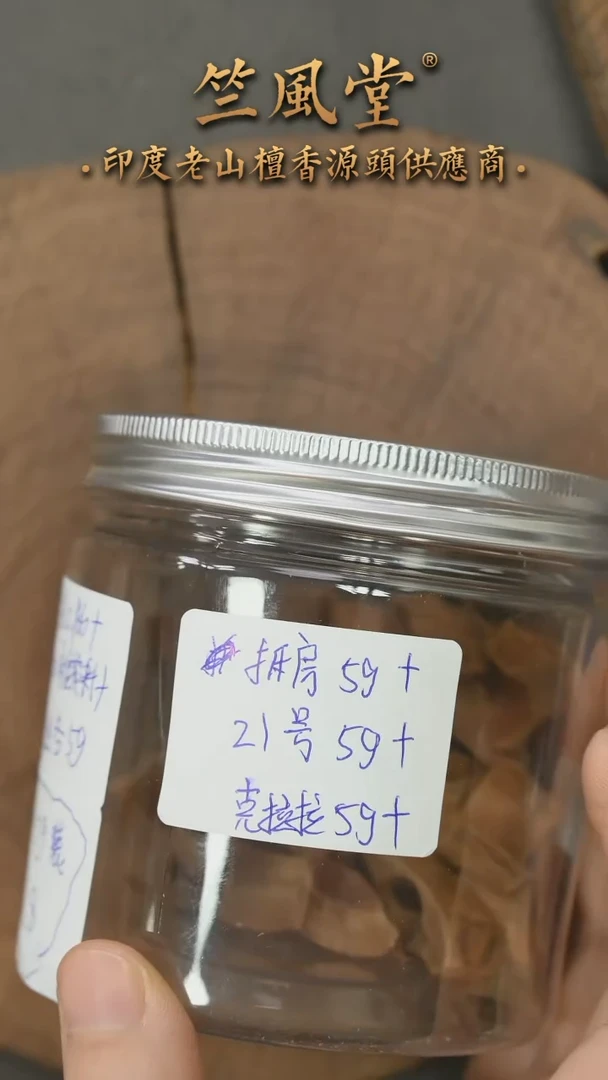 竺風堂®
·印度老山檀香源頭供應商·
房 5g+
21号 5g+
克拉拉 5g+
号 5g